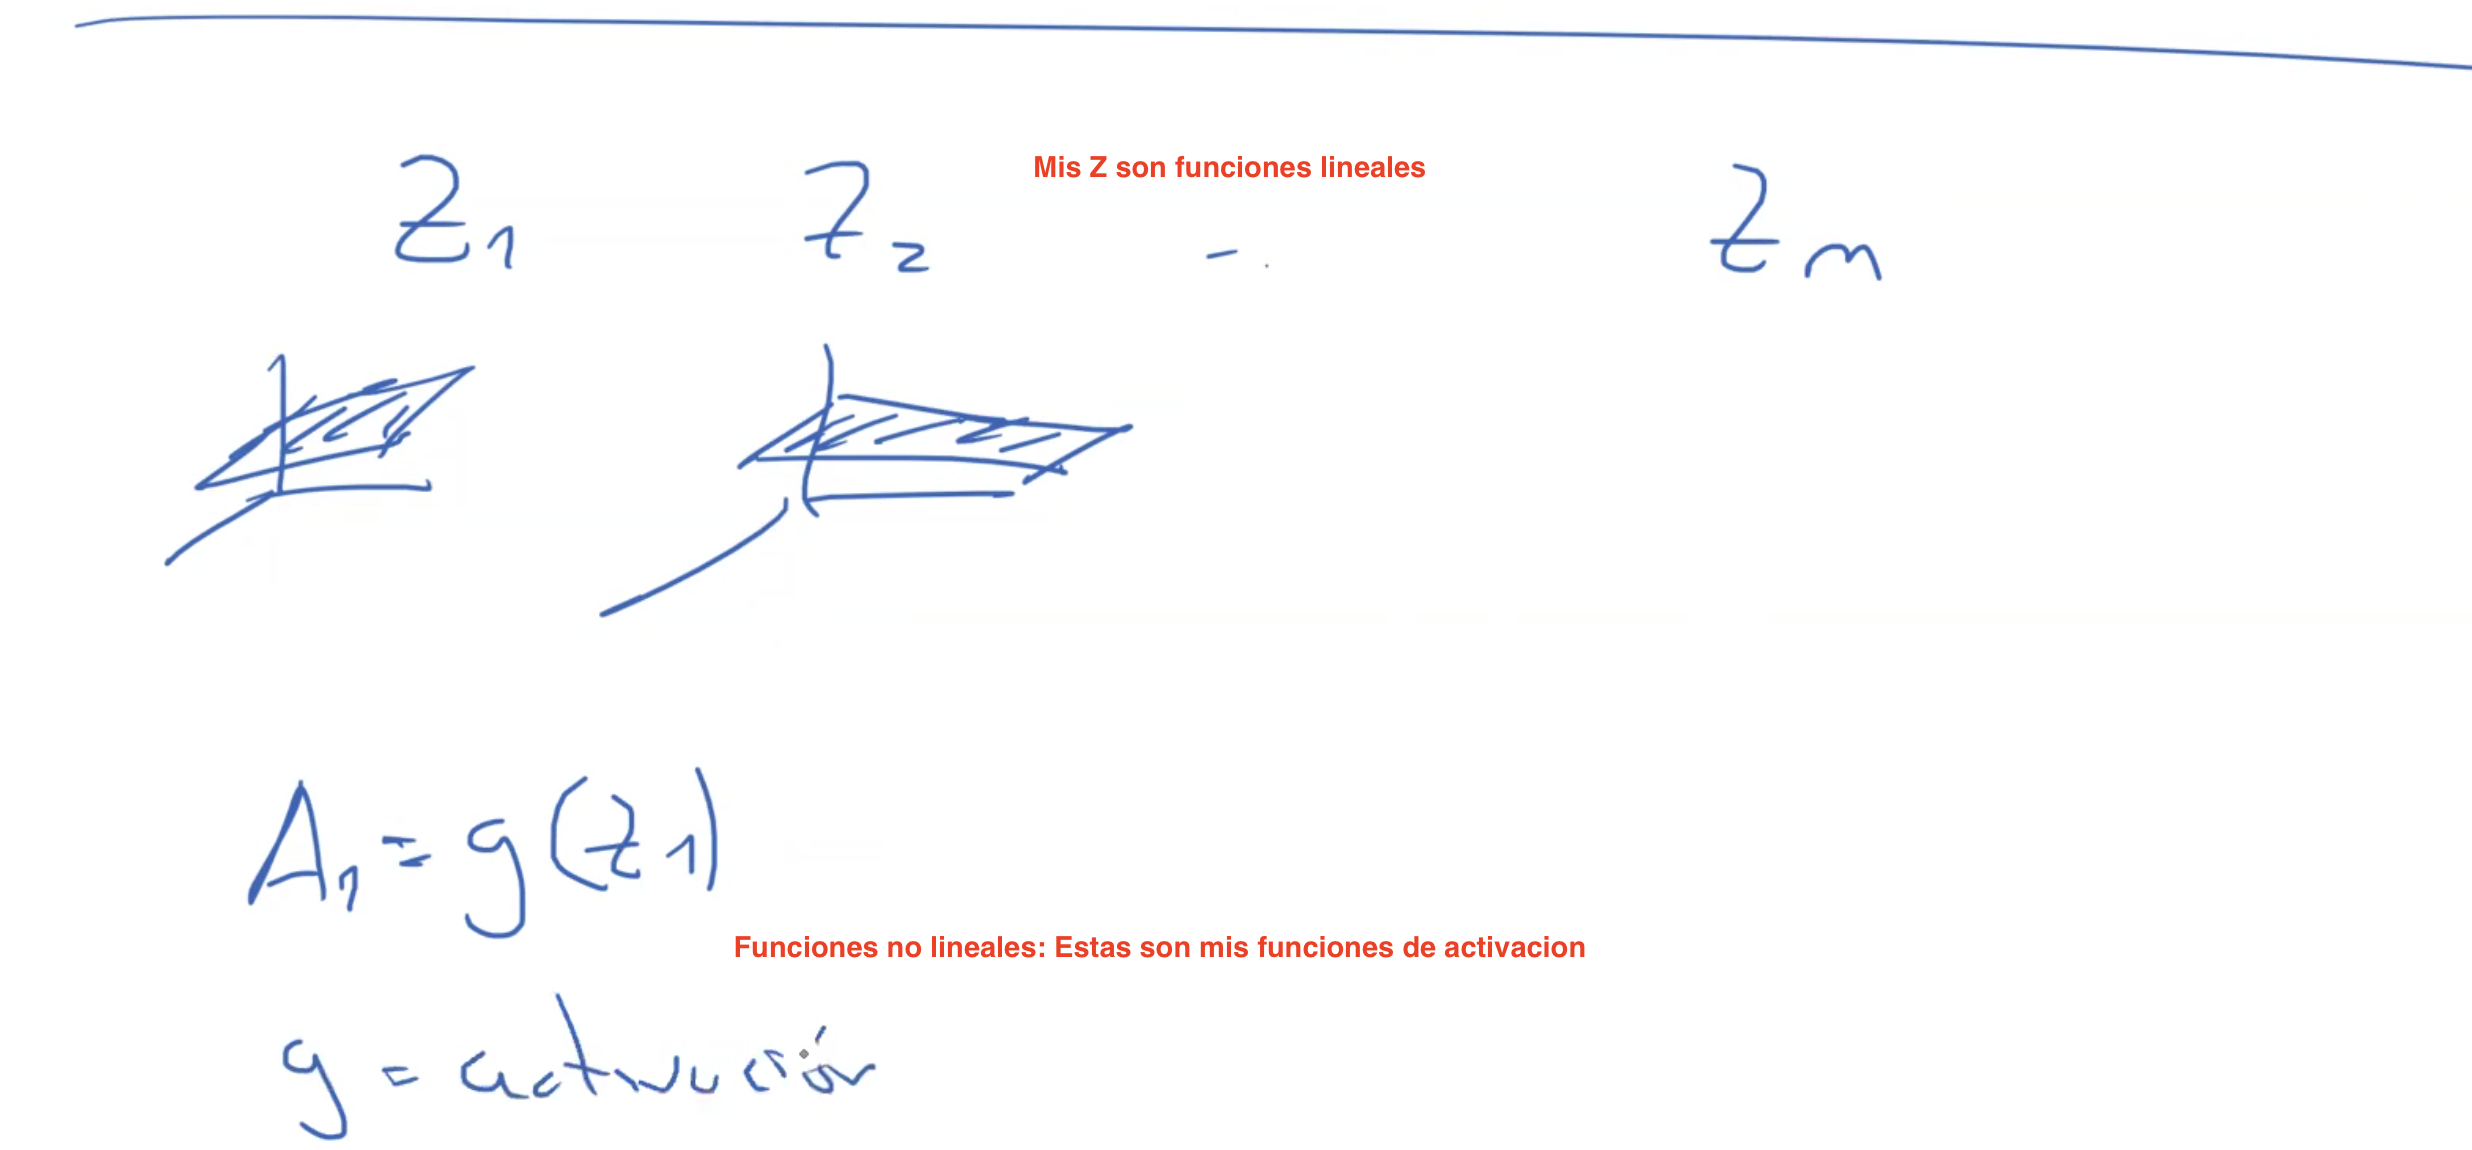 Mis Z son funciones lineales
Z1 Z2 - . Zm
A1 = g(z1)
Funciones no lineales: Estas son mis funciones de activacion
g = activación